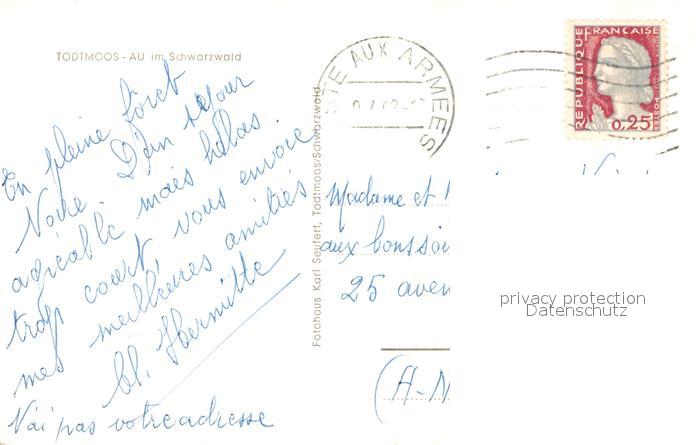 TODTMOOS - AU im Schwarzwald
En pleine forêt
Noire. D'un séjour
agréable mais hélas
trop court, vous envoie
mes meilleures amitiés
Cl. Hermitte
N'ai pas votre adresse
Fotohaus Karl Seufert, Todtmoos/Schwarzwald
STE AUX ARMEES
REPUBLIQUE
FRANÇAISE
POSTES
0,25
Madame et
aux bons soi
25 aven
(H-
privacy protection
Datenschutz